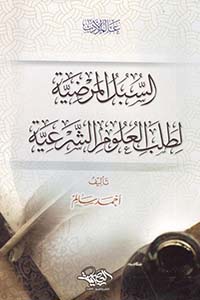 السبل المرضية
لطلب العلوم الشرعية
تأليف
أحمد سالم